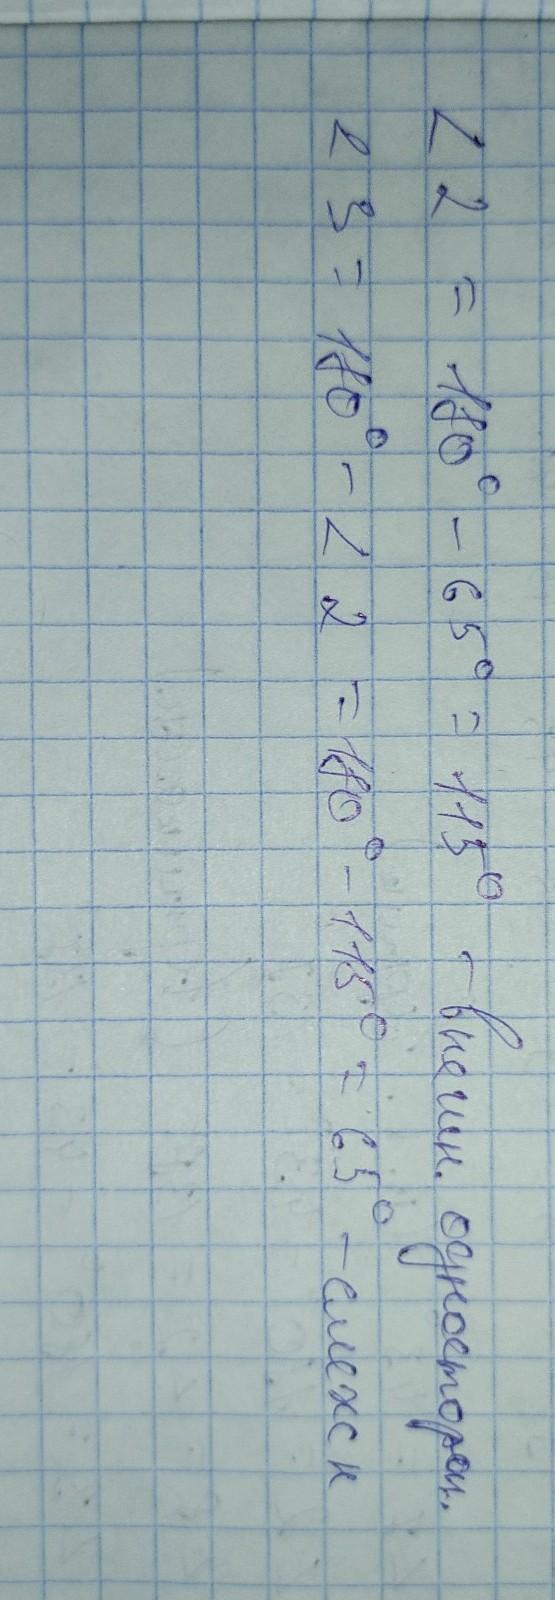 ∠2 = 180° - 65° = 115° - внешн. односторон.
∠3 = 180° - ∠2 = 180° - 115° = 65° - смежн